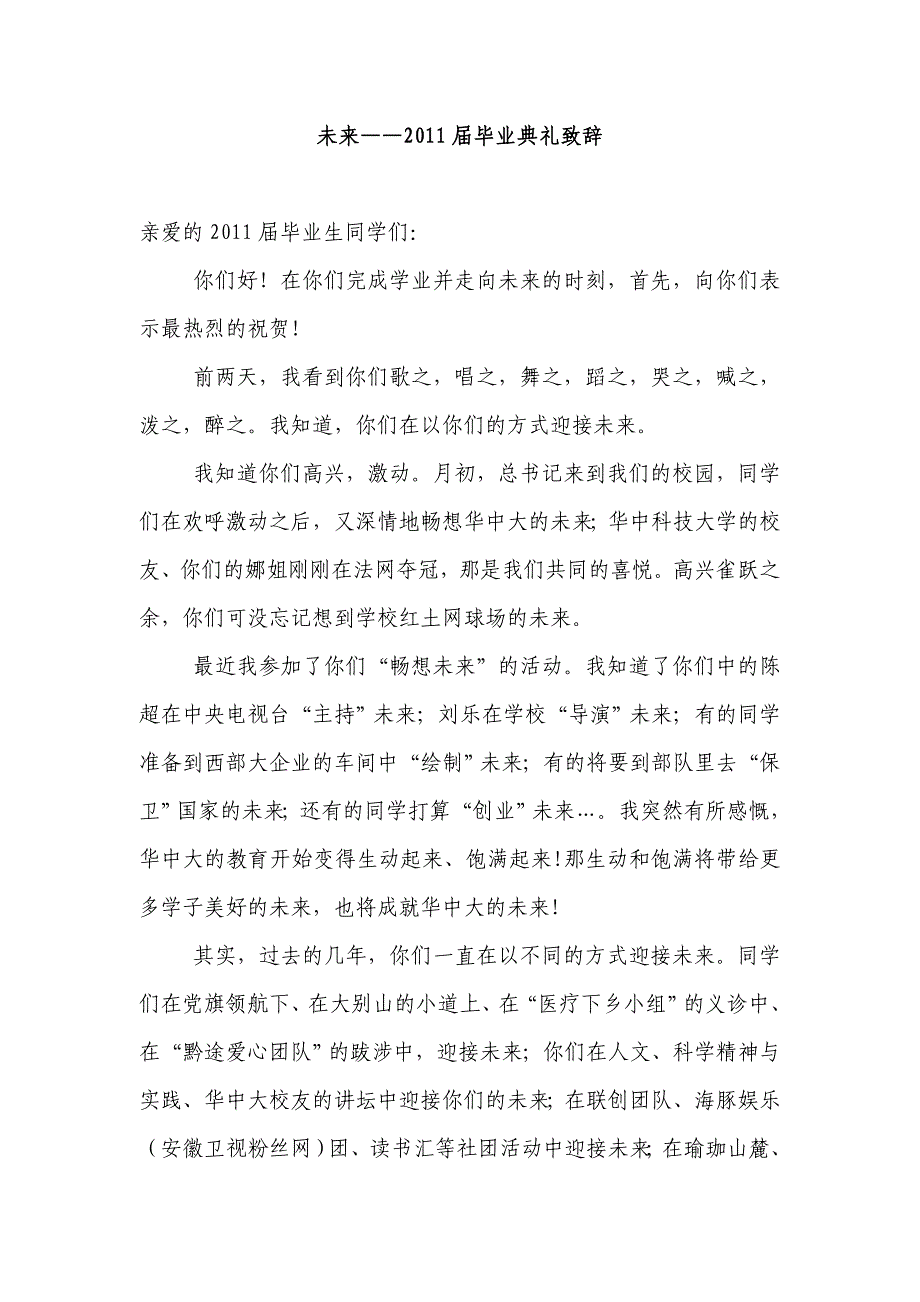 未来——2011 届毕业典礼致辞
亲爱的 2011 届毕业生同学们：
你们好！在你们完成学业并走向未来的时刻，首先，向你们表
示最热烈的祝贺！
前两天，我看到你们歌之，唱之，舞之，蹈之，哭之，喊之，
泼之，醉之。我知道，你们在以你们的方式迎接未来。
我知道你们高兴，激动。月初，总书记来到我们的校园，同学
们在欢呼激动之后，又深情地畅想华中大的未来；华中科技大学的校
友、你们的娜姐刚刚在法网夺冠，那是我们共同的喜悦。高兴雀跃之
余，你们可没忘记想到学校红土网球场的未来。
最近我参加了你们“畅想未来”的活动。我知道了你们中的陈
超在中央电视台“主持”未来；刘乐在学校“导演”未来；有的同学
准备到西部大企业的车间中“绘制”未来；有的将要到部队里去“保
卫”国家的未来；还有的同学打算“创业”未来…。我突然有所感慨，
华中大的教育开始变得生动起来、饱满起来！那生动和饱满将带给更
多学子美好的未来，也将成就华中大的未来！
其实，过去的几年，你们一直在以不同的方式迎接未来。同学
们在党旗领航下、在大别山的小道上、在“医疗下乡小组”的义诊中、
在“黔途爱心团队”的跋涉中，迎接未来；你们在人文、科学精神与
实践、华中大校友的讲坛中迎接你们的未来；在联创团队、海豚娱乐
（安徽卫视粉丝网）团、读书汇等社团活动中迎接未来；在瑜珈山麓、